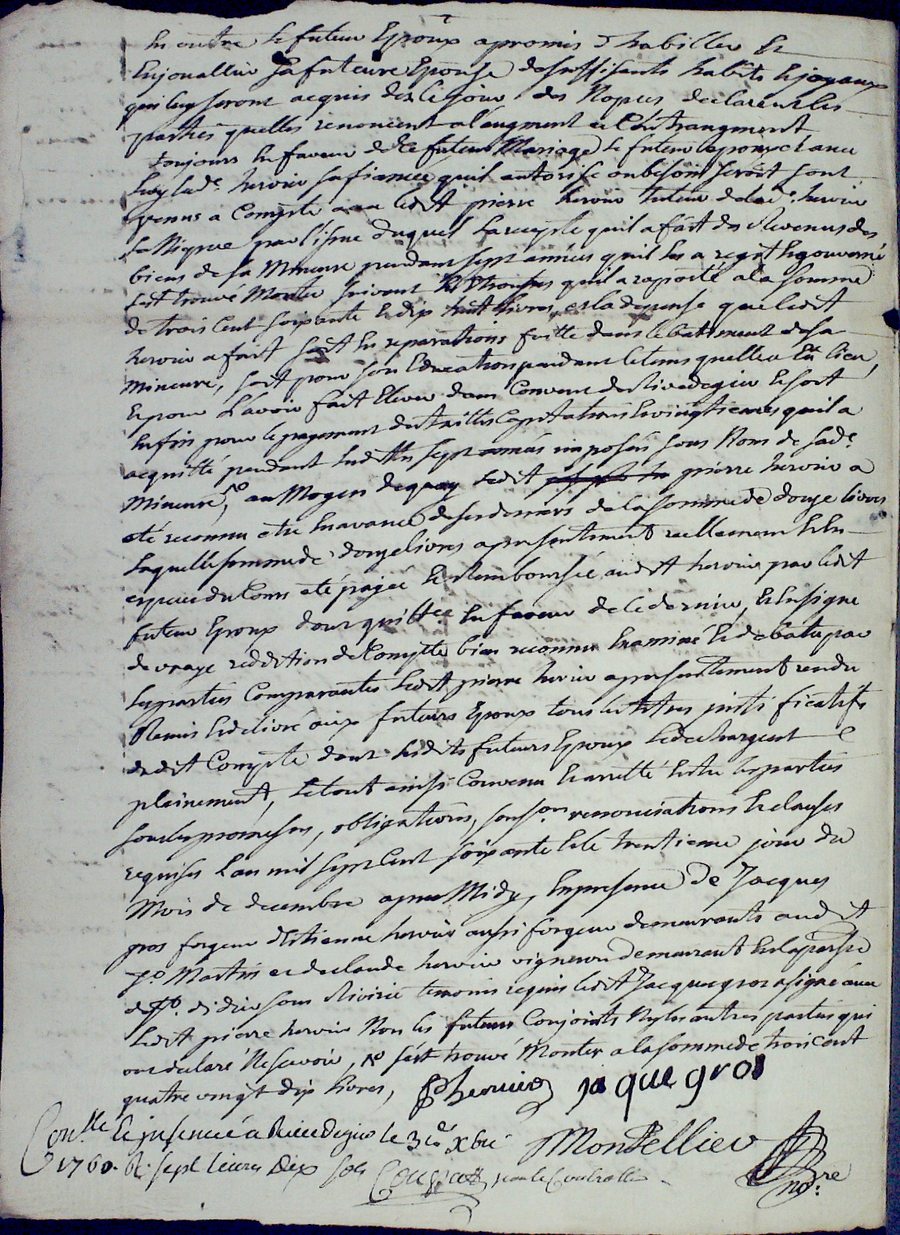 En outre le futeur Epoux apromis d'habiller Et
Enjoualler sa futeure Epouse de suffisants habits Et joyaux
qui luy seront acquis dez le jour des Nopces declarent les
parties quelles renoncent a l'augment et
toujours En faveur dud. futeur Mariage le futeur Epoux avec
lad. hervier sa fiancée quil autorise au besoin seroit sont
venus a Compte avec ledit pierre hervier tuteur de lad. hervier
par l'issue duquel la recepte quil a fait des Revenus des
biens de sa Mineure pendant sept années quil les a regit Et gouverné
s'est trouvé Monter suivant quil a raporté a la somme
de trois Cent soixante Et dix huit livres, et la depense que ledit
hervier a fait soit En reparations faitte dans le battiment de sa
Mineure, soit pour son Education pendant le tems quelle a Eu lieu,
Et pour l'avoir fait Elever dans Convent de Rivedegier Et soit
Enfin pour le payement des tailles Capitations Et vingtiemes quil a
acquitté pendant lesdittes sept années imposés sous Nom de sad.
Mineure, au Moyen dequoy ledit pierre hervier a
été reconnu etre En avance de ses deniers de la somme de douze livres
laquelle somme de douze livres apresentement reellement Et En
espece du Cours eté payée Et Remboursée audit hervier par ledit
futeur Epoux dont quitte En faveur de ce dernier, Et En signe
de vraye reddition de Compte bien reconnu Examiné Et debatu par
les parties Comparantes ledit pierre hervier apresentement rendu
Remis Et delivré aux futeurs Epoux tous les titres justificatifs
dudit Compte dont lesdits futeurs Epoux le dechargent
pleinement, le tout ainsi Convenu Et arretté Entre les parties
sous les promesses, obligations, renonciations Et clauses
requises l'an mil sept Cent soixante Et le trentieme jour du
Mois de decembre apres Midy, En presence de Jacques
gros forgeur d'Etienne hervier aussi forgeur demeurants audit
St. Martin et de claude hervier vigneron demeurant En la parsse
de St. didier sous Riverie temoins requis ledit Jacque gros a signé avec
ledit pierre hervier Non les futeurs Conjoints Ny les autres parties qui
ont declaré Ne scavoir, s'est trouvé Monter a la somme de trois cent
quatre vingt dix livres, P hervier jaque gros
Con.lle Et insinué a Rivedegier le 31e Xbre Montellier
1760. R. sept livres Dix sols pour le Controlle nore